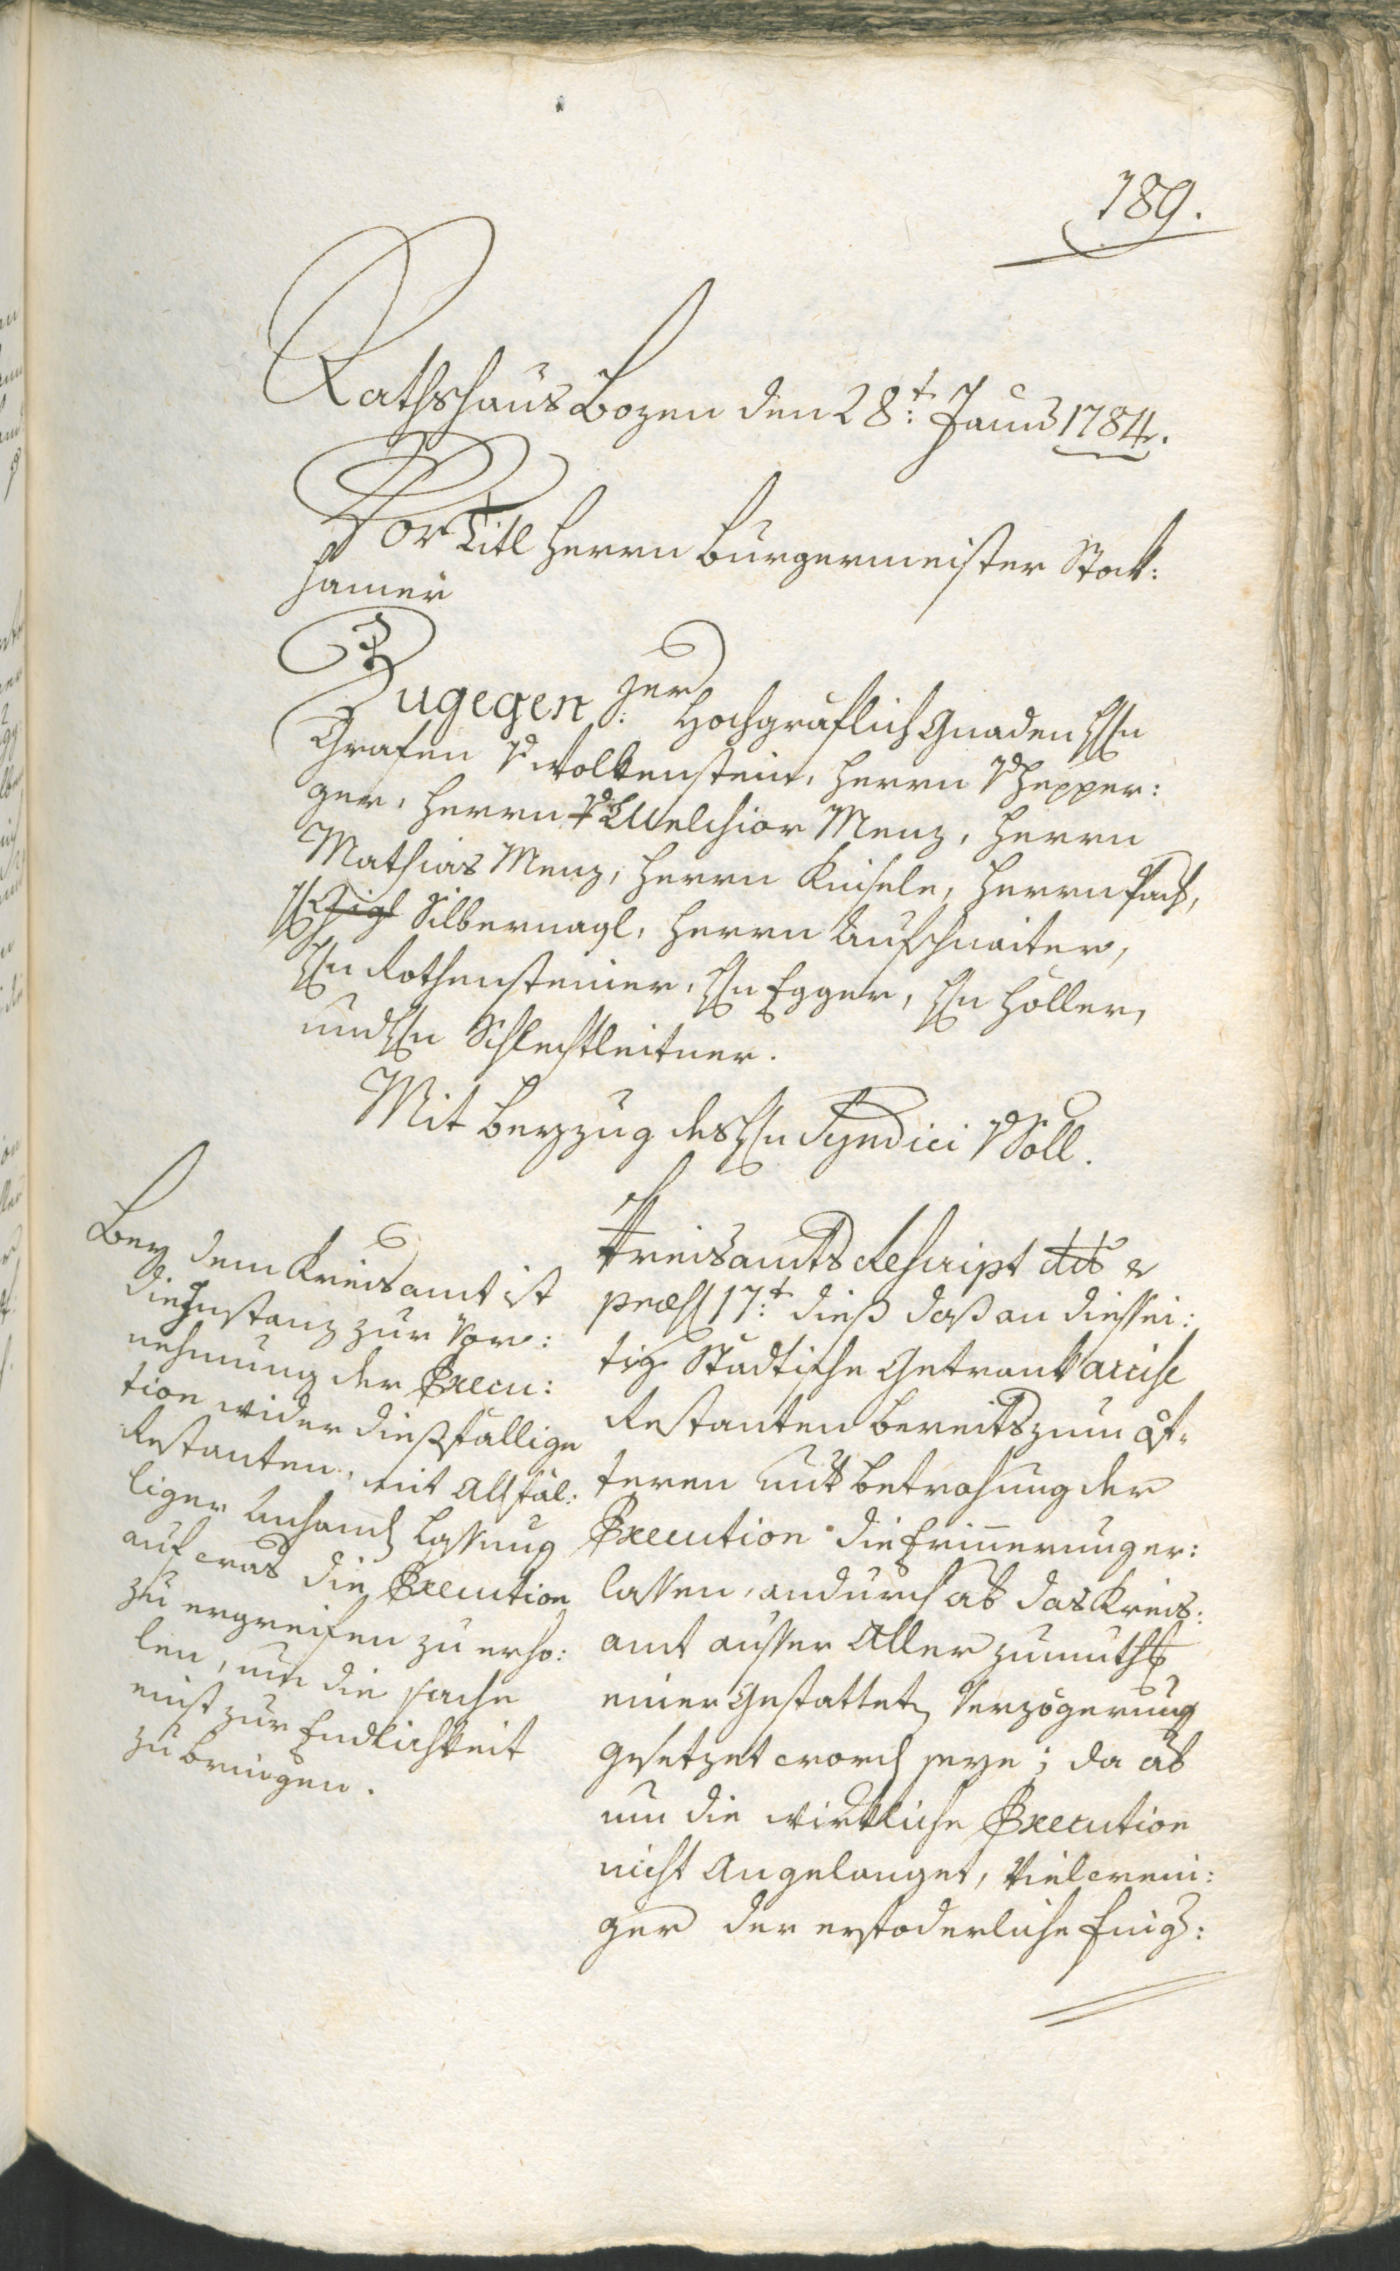 189.
Rathshaus Bozen den 28:t Junÿ 1784.
Vor Titl Herrn Burgermeister Stock:
hamer
Zugegen: Ihro Hochgräflich Gnaden Hn
Grafen v Wolkenstein, Herrn v Hepper:
ger, Herrn v Melchior Menz, Herrn
Mathias Menz, Herrn Knisele, Herrn Pach,
Hn Silbernagl, Herrn Aufschnaiter,
Hn Rothensteiner, Hn Egger, Hn Höller,
und Hn Schlechtleitner.
Mit Beyzug des Hn Syndici v Söll.
Bey dem Kreisamt ist
die Instanz zur Vor:
nehmung der Execu:
tion wider dießfällige
Restanten, mit Allfäl:
liger Anhand Lassung
auf was die Execution
zu ergreifen zu erho:
len, um die Sache
einst zur Endlichkeit
zu bringen.
Kreisamts Rescript dto &
præs 17:t dieß daß an diessei:
tig Stadtische Getrank accise
Restanten bereits zum öf:
teren mit Betrohung der
Execution die Erinnerung er:
lassen, andurch ab das Kreis:
amt ausser Aller zumuth
einer Gestatteten Verzögerung
gesetzet worden seye; da ab
um die wirkliche Execution
nicht Angelanget, Viel weni:
ger der erfoderliche Fing: